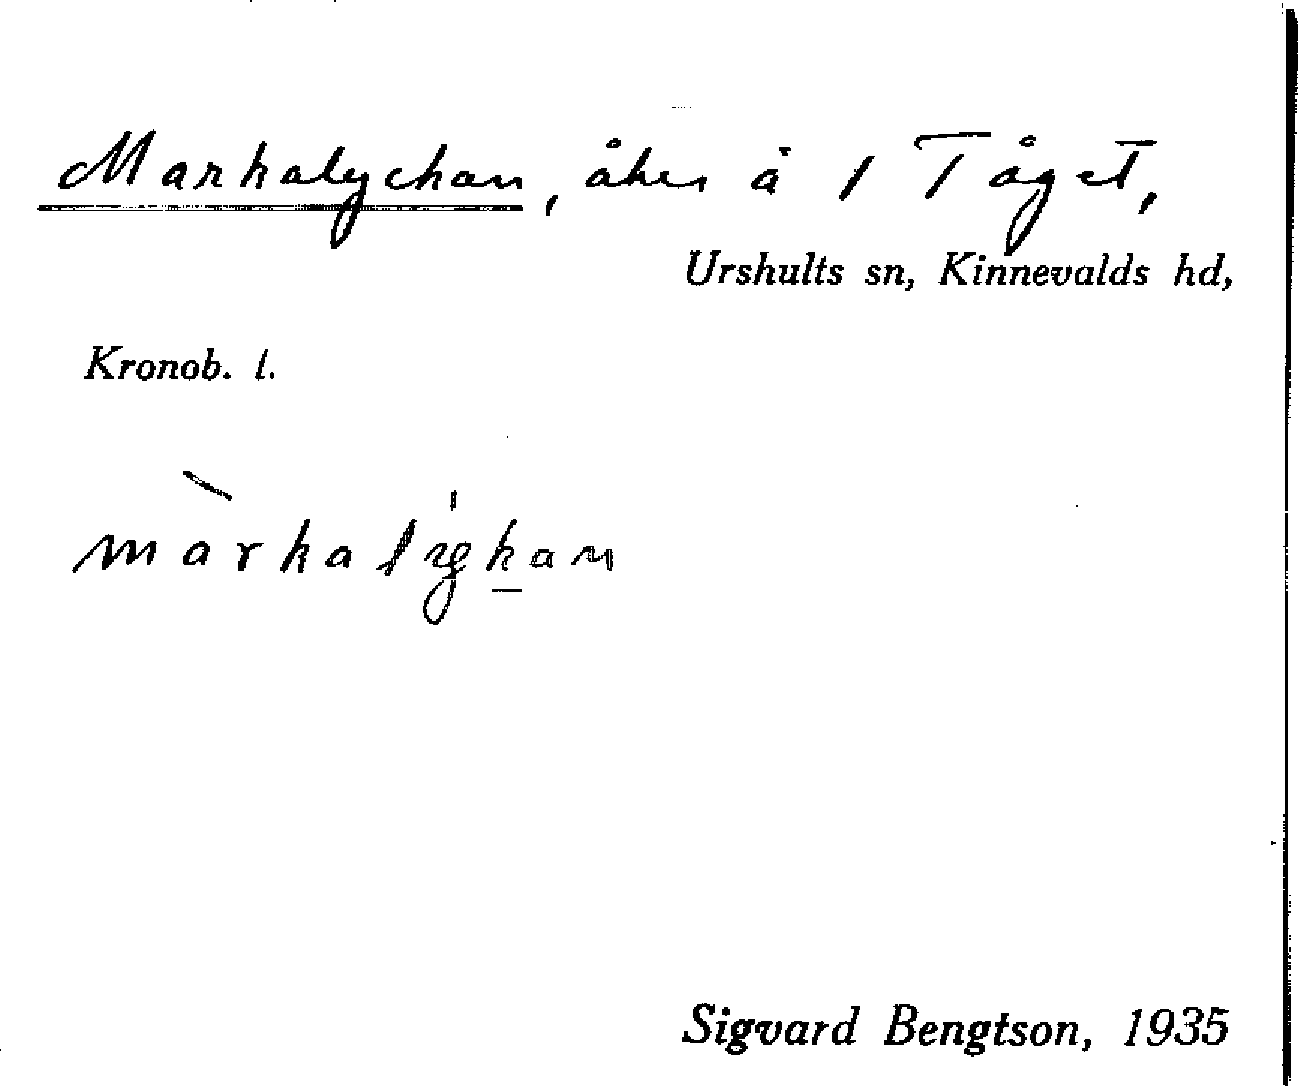 Markalyckan, åker å 1 Tåget,
Urshults sn, Kinnevalds hd,
Kronob. l.
màrkalyk̲an
Sigvard Bengtson, 1935